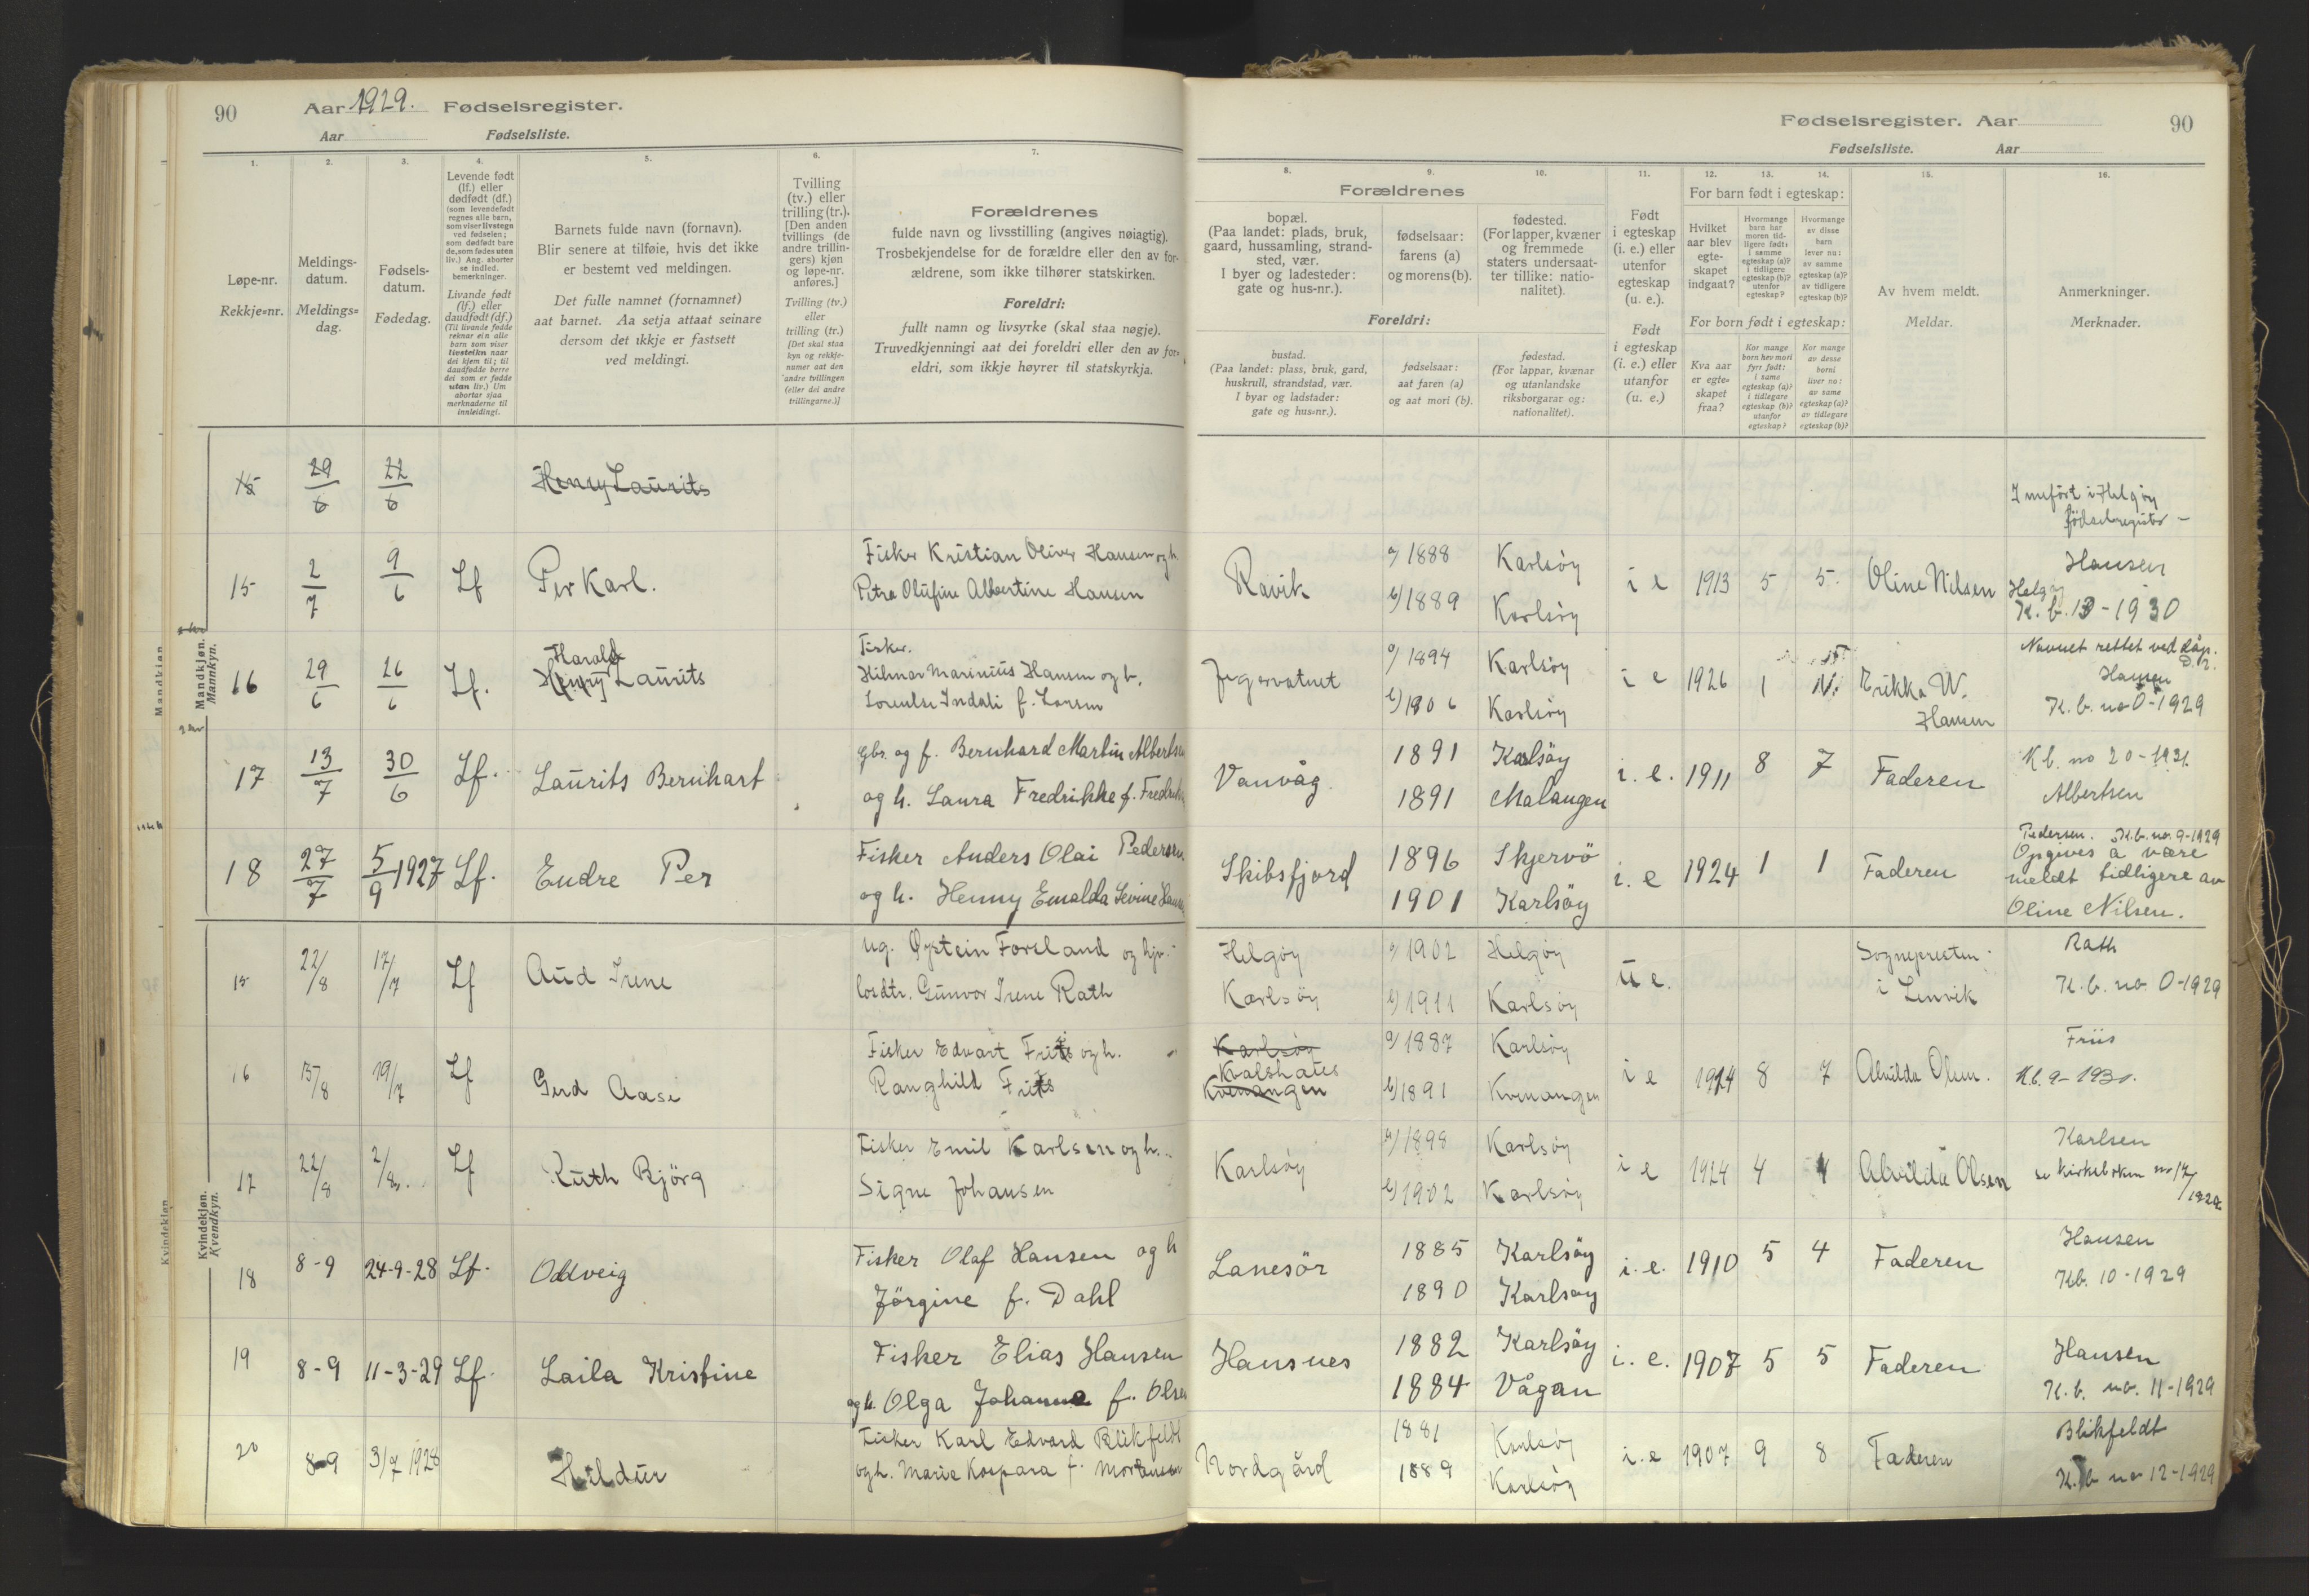 90 Aar 1929. Fødselsregister.
Aar Fødselsliste.
1. 2. 3. 4. 5. 6. 7.
Løpe-nr.
Rekkje=nr.
Meldings-
datum.
Meldings=
dag.
Fødsels-
datum.
Fødedag.
Levende født
(lf.) eller
dødfødt (df.)
(som levendefødt
regnes alle barn,
som viser livstegn
ved fødselen;
som dødfødt bare
de, som fødes uten
liv.) Ang. aborter
se indled.
bemerkninger.
Livande født
(lf.) eller
daudfødt (df.)
(Til livande fødde
reknar ein alle
barn som viser
livsteikn naar
dei kjem til; til
daudfødde berre
dei som er fødde
utan liv.) Um
abortar sjaa
merknaderne til
innleidingi.
Barnets fulde navn (fornavn).
Blir senere at tilføie, hvis det ikke
er bestemt ved meldingen.
Det fulle namnet (fornamnet)
aat barnet. Aa setja attaat seinare
dersom det ikkje er fastsett
ved meldingi.
Tvilling
(tv.) eller
trilling (tr.).
[Den anden
tvillings (de
andre trillin-
gers) kjøn
og løpe-nr.
anføres.]
Tvilling (tv.)
eller
trilling (tr.)
[Det skal staa
kyn og rekkje-
numer aat den
andre tvillingen
(eller dei andre
trillingarne.)]
Forældrenes
fulde navn og livsstilling (angives nøiagtig).
Trosbekjendelse for de forældre eller den av for-
ældrene, som ikke tilhører statskirken.
Foreldri:
fullt namn og livsyrke (skal staa nøgje).
Truvedkjenningi aat dei foreldri eller den av for=
eldri, som ikkje høyrer til statskyrkja.
Fødselsregister. Aar 90
Fødselsliste. Aar
8. 9. 10. 11. 12. 13. 14. 15. 16.
Forældrenes
bopæl.
(Paa landet: plads, bruk,
gaard, hussamling, strand-
sted, vær.
I byer og ladesteder:
gate og hus-nr.).
fødselsaar:
farens (a)
og morens (b).
fødested.
(For lapper, kvæner
og fremmede
staters undersaat-
ter tillike: natio-
nalitet).
Foreldri:
bustad.
(Paa landet: plass, bruk, gard,
huskrull, strandstad, vær.
I byar og ladstader:
gate og hus=nr.).
fødselsaar:
aat faren (a)
og aat mori (b).
fødestad.
(For lappar, kvænar
og utanlandske
riksborgarar og:
nationalitet).
Født
i egteskap
(i. e.) eller
utenfor
egteskap
(u. e.).
Født
i egteskap
(i. e.) eller
utanfor
(u. e.)
For barn født i egteskap:
Hvilket
aar blev
egte-
skapet
indgaat?
Hvormange
barn har
moren tid-
ligere født:
i samme
egteskap (a)?
i tidligere
egteskap (b)?
utenfor
egteskap?
Hvormange
av disse
barn
lever nu:
av samme
egteskap (a)?
av tidligere
egteskap (b)?
For born født i egteskap:
Kva aar
er egte=
skapet
fraa?
Kor mange
born hev mori
fyrr født:
i same
egteskap (a)?
i tidlegare
egteskap (b)?
utanfor
egteskap?
Kor mange
av desse
borni
liver no:
av same
egteskap (a)?
av tidlegare
egteskap (b)?
Av hvem meldt.
Meldar.
Anmerkninger.
Merknader.
Mandkjøn.
Mannkyn.
15 29/6 22/6 Henry Laurits
Innført i Helgøy
fødselsregister -
15 2/7 9/6 Lf Per Karl.
Fisker Kristian Oliver Hansen og h.
Petra Olufine Albertine Hansen
Ravik a) 1888 Karlsöy
b) 1889 Karlsöy
i e 1913 5 5. Oline Nilsen
Hansen
Helgøy
K. b. 13-1930
16 29/6 26/6 Lf. Harald
Henry Laurits
Fisker.
Hilmar Marinius Hansen og h.
Lorentse Indali f. Larsen
Jegervatnet a) 1894 Karlsöy
b) 1906 Karlsöy
i e 1926 1 Erikka W.
Hansen
Navnet rettet ved dåp.
Hansen
K. b. no 0-1929
17 13/7 30/6 Lf. Laurits Bernhart
Gbr. og f. Bernhard Martin Albertsen
og h. Laura Fredrikke f.
Vanvåg. 1891 Karlsöy
1891 Malangen
i. e. 1911 8 7 Faderen
K b. no 20-1931.
Albertsen
18 27/7 5/9 1927 Lf. Endre Per
Fisker Anders Olai Pedersen.
og h. Henny Emalda Sevine
Skibsfjord 1896 Skjervö
1901 Karlsöy
i. e 1924 1 1 Faderen
Pedersen. K. b. no. 9-1929
Opgives å være
meldt tidligere av
Oline Nilsen.
Kvindekjøn.
Kvendkyn.
15 22/8 17/7 Lf Aud Irene
ug. Øystein Forsland og hjv.
losdtr. Gunvor Irene Rath
Helgöy a) 1902 Helgöy
Karlsöy b) 1911 Karlsöy
u e.
Sognepresten
i Lenvik
Rath
K. b. no. 0-1929
16 15/8 19/7 Lf Gerd Aase
Fisker Edvart Friis og h.
Ranghild Friis
Karlsöy
Kvalshates
Kvenangen
a) 1887 Karlsöy
b) 1891 Kvenangen
i e 1914 8 7 Alvilda Olsen.
Friis
K b. 9-1930.
17 22/8 2/8. Lf Ruth Bjørg
Fisker Emil Karlsen og h.
Signe Johansen
Karlsöy a) 1898 Karlsöy
b) 1902 Karlsöy
i e 1924 4 4 Alvilda Olsen
Karlsen
se kirkeboken no 17/1929
18 8-9 24-9-28 Lf. Oddveig
Fisker Olaf Hansen og h
Jörgine f. Dahl
Lanesör 1885 Karlsöy
1890 Karlsöy
i. e. 1910 5 4 Faderen
Hansen
Kb. 10-1929
19 8-9 11-3-29 Lf. Laila Kristine
Fisker Elias Hansen
og h. Olga Johanne f. Olsen
Hansnes 1882 Karlsöy
1884 Vågan
i. e. 1907 5 5 Faderen
Hansen
K. b. no. 11-1929
20 8-9 3/7 1928 Hildur
Fisker Karl Edvard Blikfeldt
og h. Marie Kaspara f. Mortensen
Nordgård 1881 Karlsöy
1889 Karlsöy
i. e 1907 9 8 Faderen
Blikfeldt
K. b no 12-1929